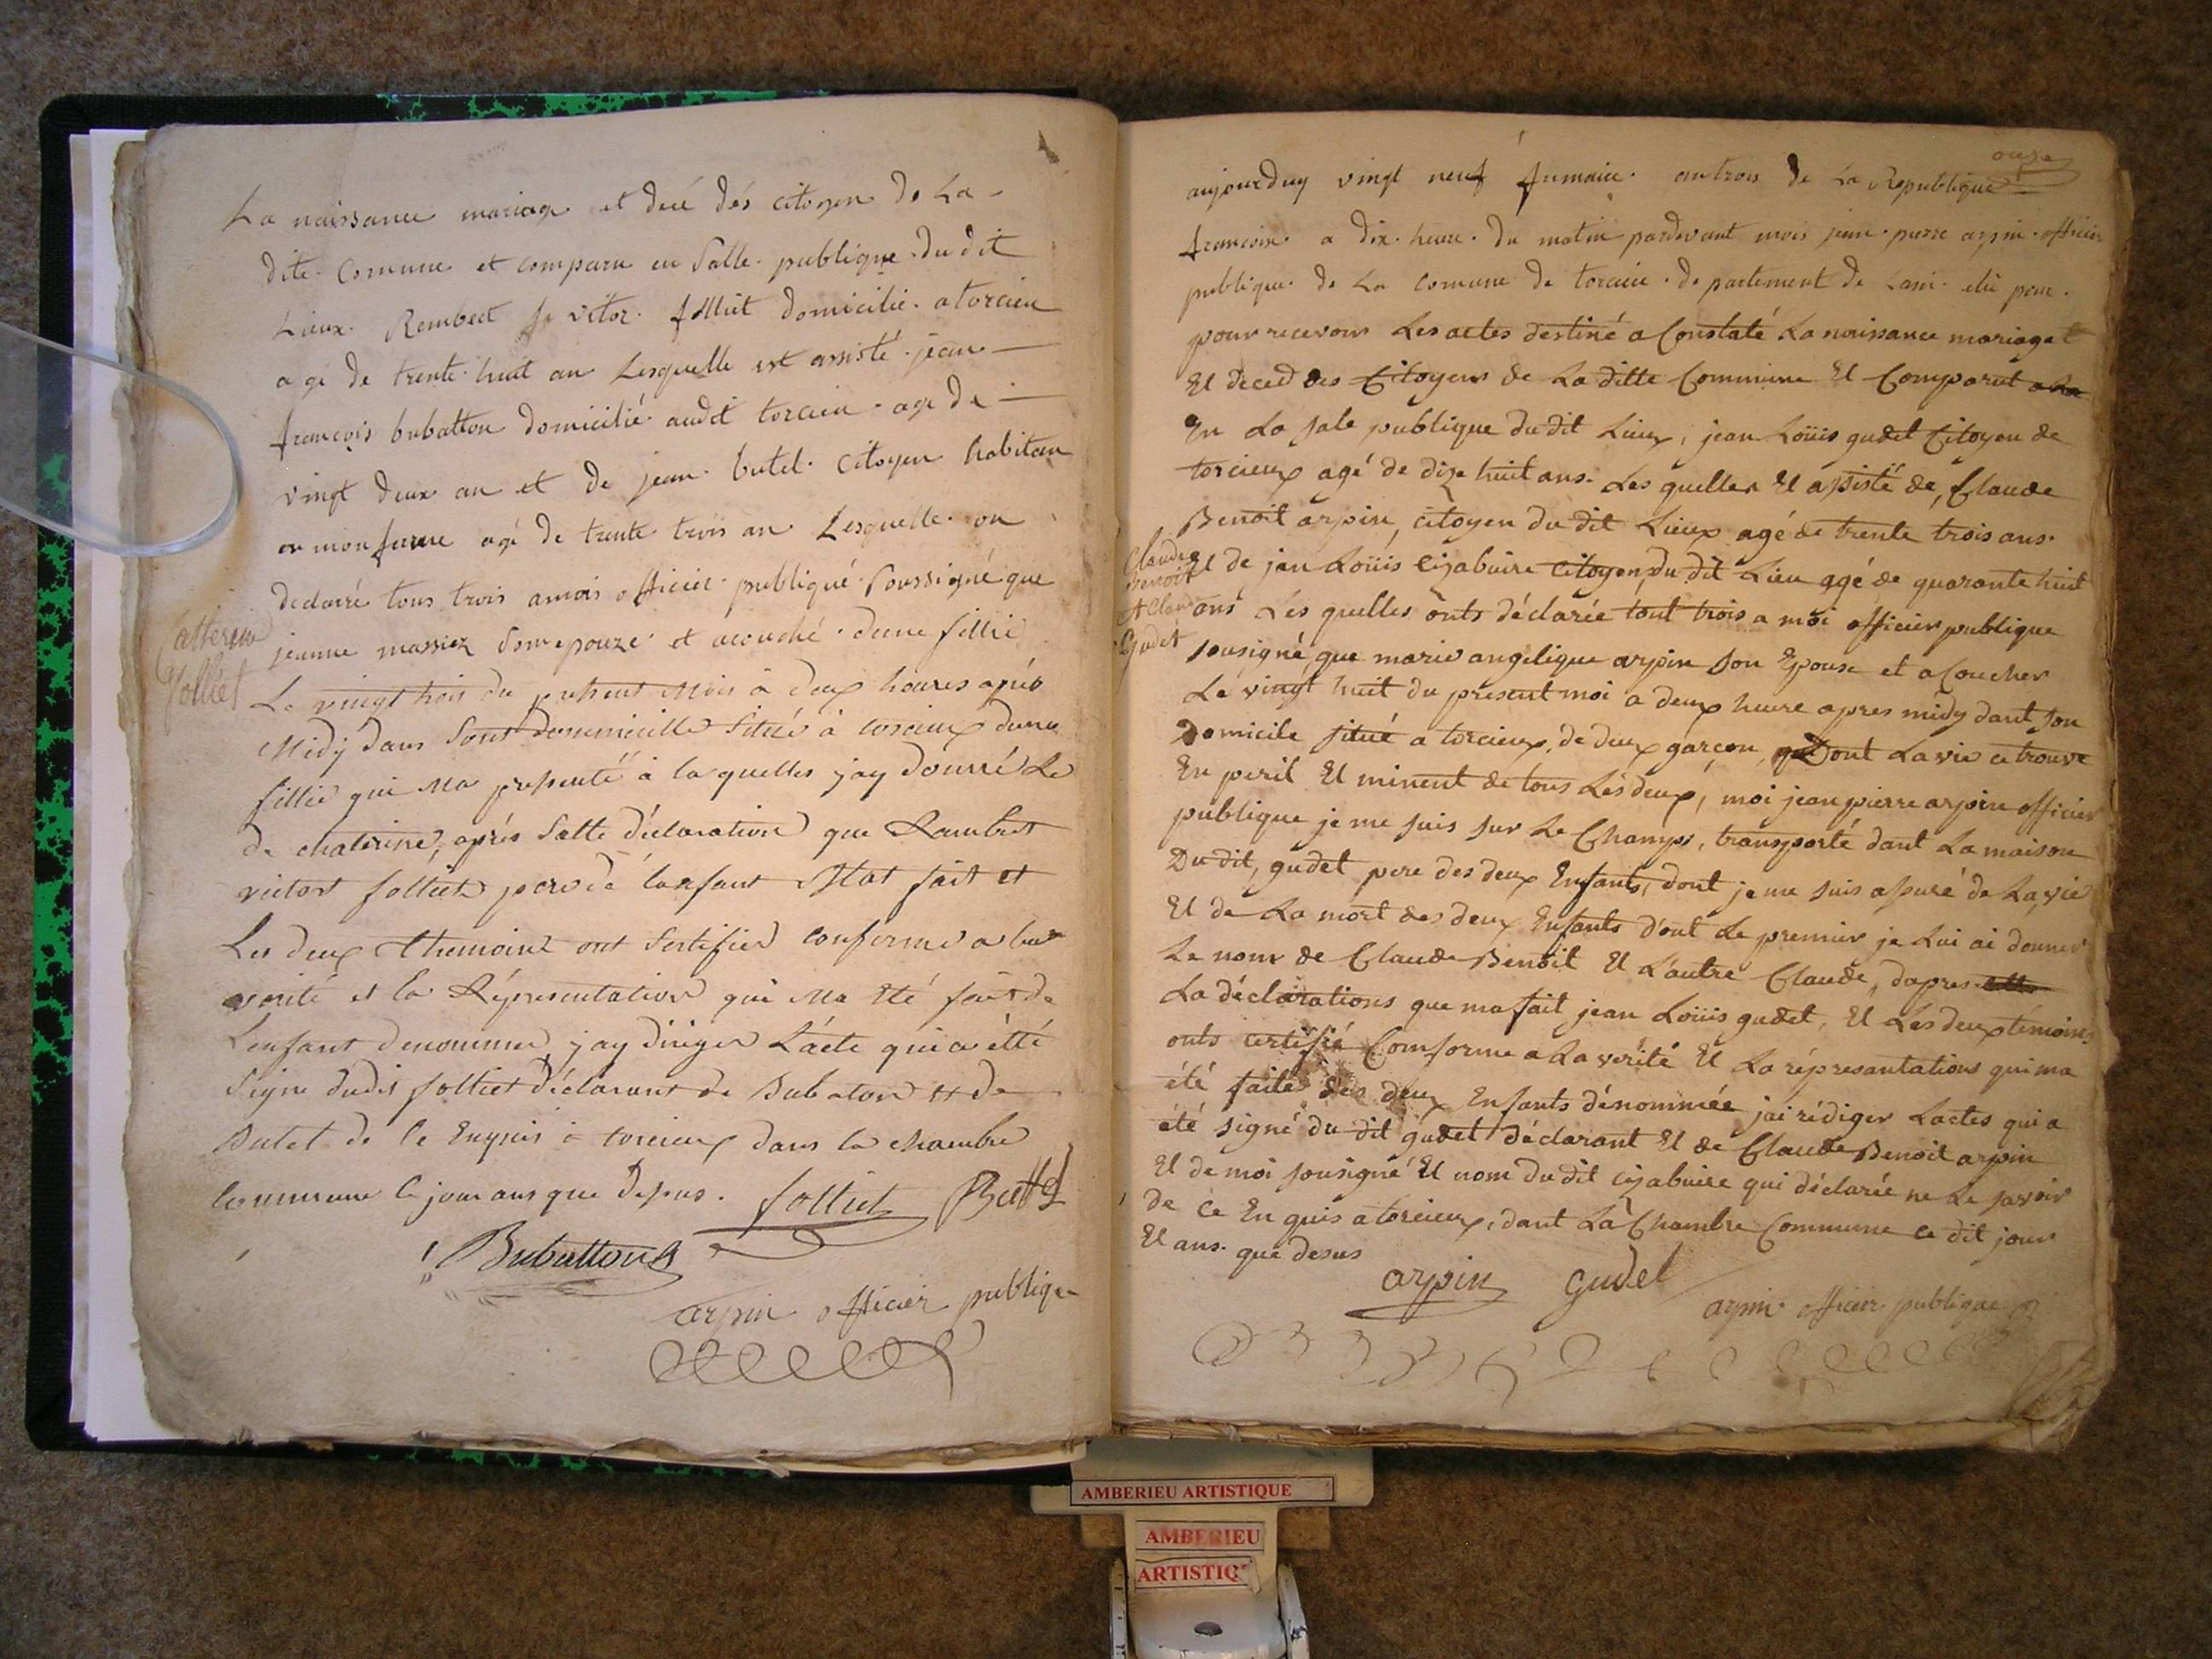 La naissance mariage et decé dés citoyen de La
dite Comune et comparu en Salle publique du dit
Lieux Rembert vitor folliet domicilié a torcieu
agé de trente huit an Lesquelle est assisté jean
françois bubatton domicilié audit torcieu age de
vingt deux an et de jean butet citoyen habitan
agé de trente trois an Lesquelle on
declaré tous trois amois officier publiqué Soussigné que
jeanne massiez Son epouze et acouché dune fillie
Catterine
folliet
Le vingt trois du present Mois à deux heures après
Midÿ dans Sont dommicille Situé à torcieux dune
fillie qui Ma présenté à la quelles jay donné Le
de chaterine, après Sette déclaration que Rambert
victort folliet pere dé lanfant Mat fait et
Les deux themoins ont Sertifier conforme a la
vérité et la Représentation qui Ma été fait de
Lenfant denommer jay dirigér Lácte qui a étté
Signe dudit folliet déclarant de Bubaton et de
Butet de Ce Enquis à torcieux dans la chambre
Commune Ce jour ans que depus. folliet Buttet
Bubatton
arpin officier publique
onze
aujourduy vingt neuf frimaire an trois de La Republique
francoise a dix heure du matin pardevant mois jean pierre arpin officier
publique de La Comune de torcieu de partement de Lain elu pour
pour recevoir Les actes destiné a Constaté La naissance mariage et
Et deced des Citoyens de La ditte Commune Et Comparut a La
En La sale publique du dit Lieux, jean Loüis gudet Citoyen de
torcieux agé de dize huit ans. Les quelles Et assisté de, Claude
Benoit arpin, citoyen du dit Lieux agé de trente trois ans.
Claude
Benoit
et Claude
Gudet
Et de jan Loüis Cizabuire Citoyen du dit Lieu agé de quarante huit
ans Les quelles onts déclarée tout trois a moi officier publique
sousigné que marie angelique arpin son Epouse et a Coucher
Le vingt huit du présent moi a deux heure apres midy dant son
Domicile situé a torcieux, de deux garçon, dont La vie ce trouve
En peril Et minent de tous Lés deux, moi jean pierre arpin officier
publique je me suis sur Le Champs, transporté dant La maison
Du dit, gudet pere des deux Enfants, dont je me suis assuré de La vie
Et de La mort des deux Enfants dont Le premier je Lui ai donner
Le nom de Claude Benoit Et Lautre Claude, dapres
La déclarations que ma fait jean Loüis gudet, Et Les deux témoins
onts certifié Comforme a La verité Et La réprésantations qui ma
été faite des deux Enfants dénommée jai rédiger Lactes qui a
été signé du dit gudet déclarant Et de Claude Benoit arpin
Et de moi sousigné Et nom du dit cizabuire qui déclarée ne Le savoir
de Ce En quis a torcieux, dant La Chambre Commune ce dit jour
Et ans que desus
arpin Gudet
arpin officier publique
AMBERIEU ARTISTIQUE
AMBERIEU
ARTISTIQ